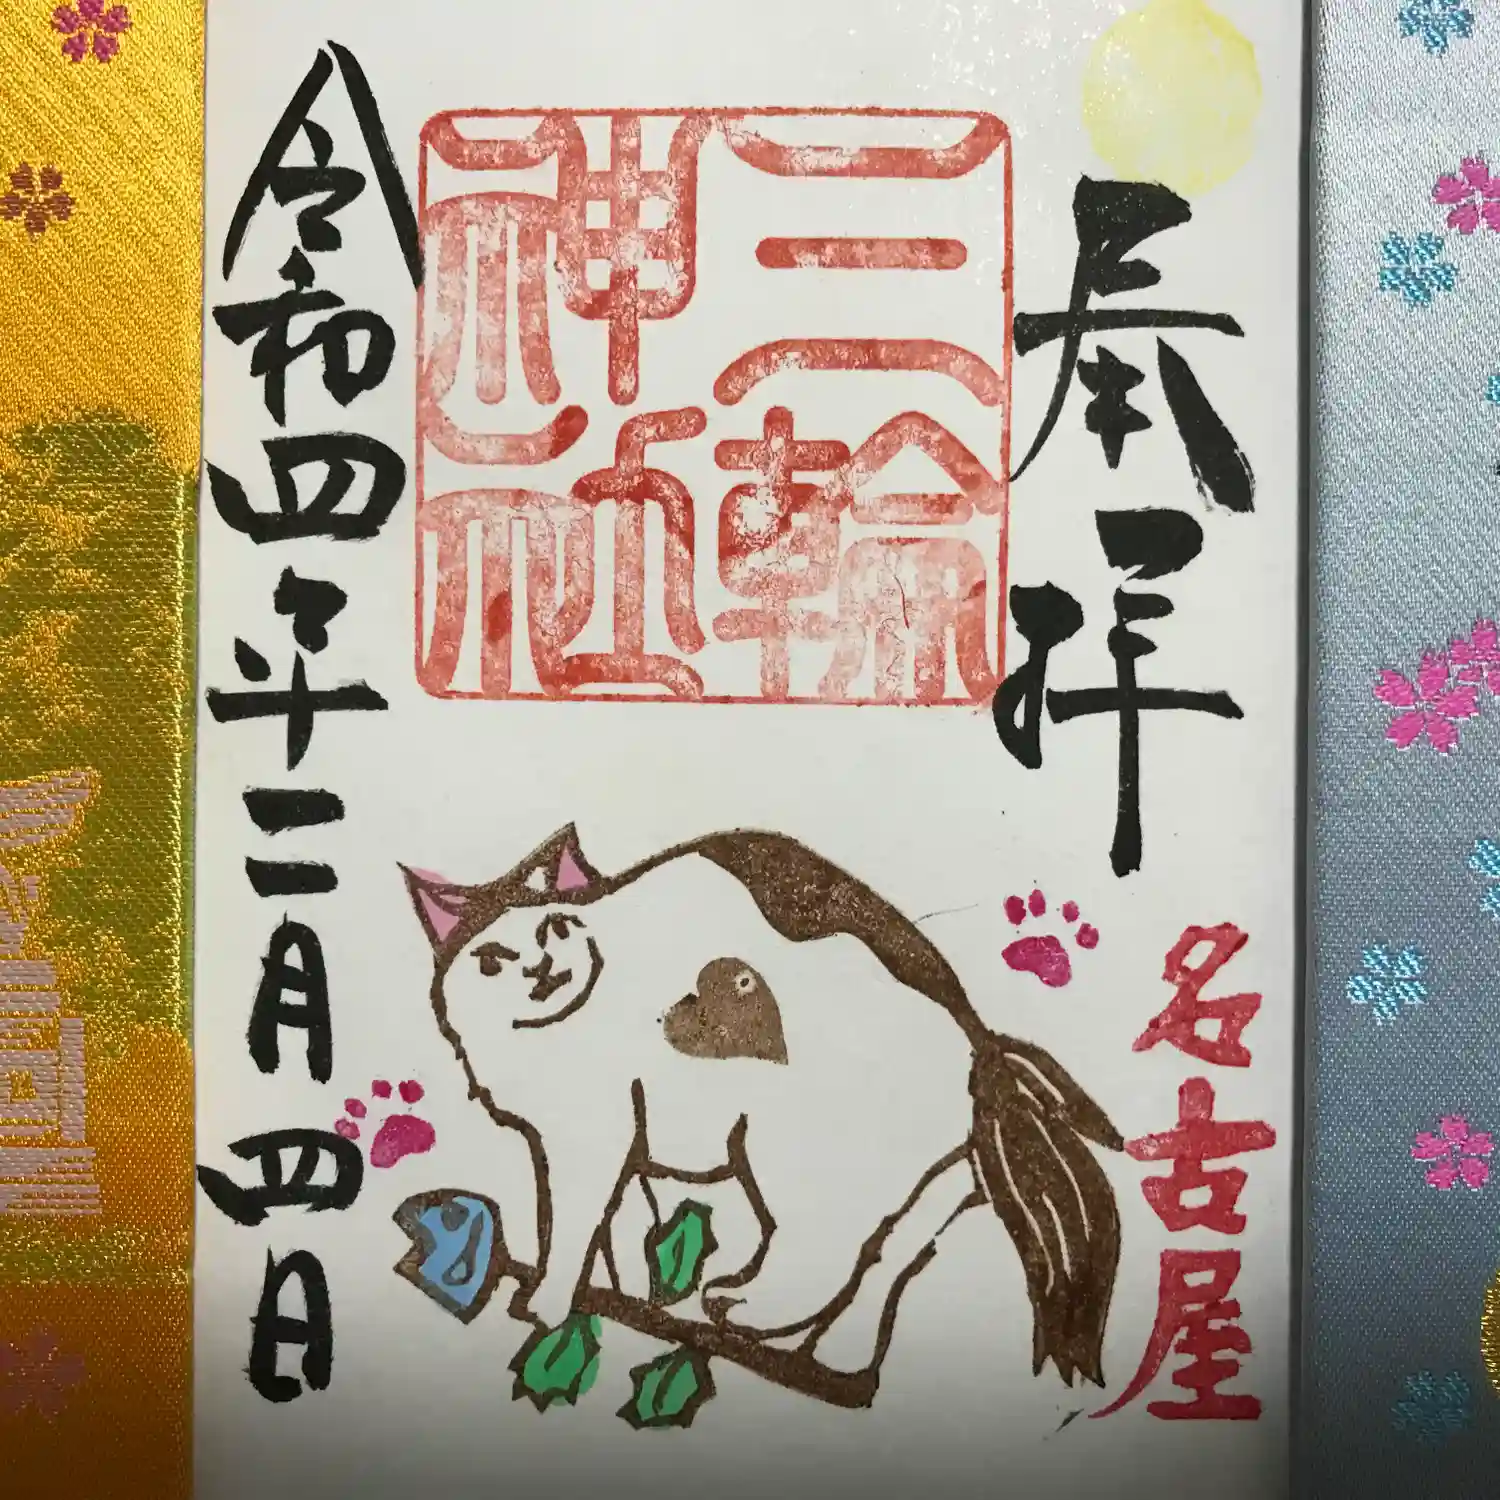 奉拝
名古屋
三輪
神社
令和四年二月四日